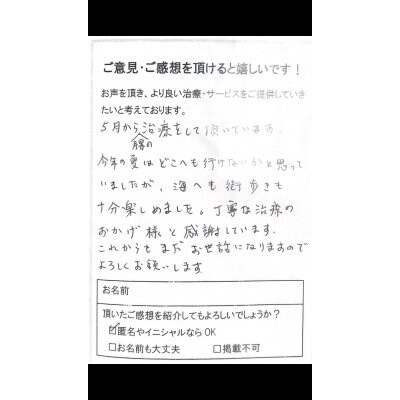 ご意見・ご感想を頂けると嬉しいです！
お声を頂き、より良い治療・サービスをご提供していき
たいと考えております。
5月から腰の治療をして頂いています。
今年の夏はどこへも行けないかと思って
いましたが、海へも街歩きも
十分楽しめました。丁寧な治療の
おかげ様と感謝しています。
これからもまだお世話になりますので
よろしくお願いします
お名前
頂いたご感想を紹介してもよろしいでしょうか？
☑匿名やイニシャルなら OK
□お名前も大丈夫 □掲載不可